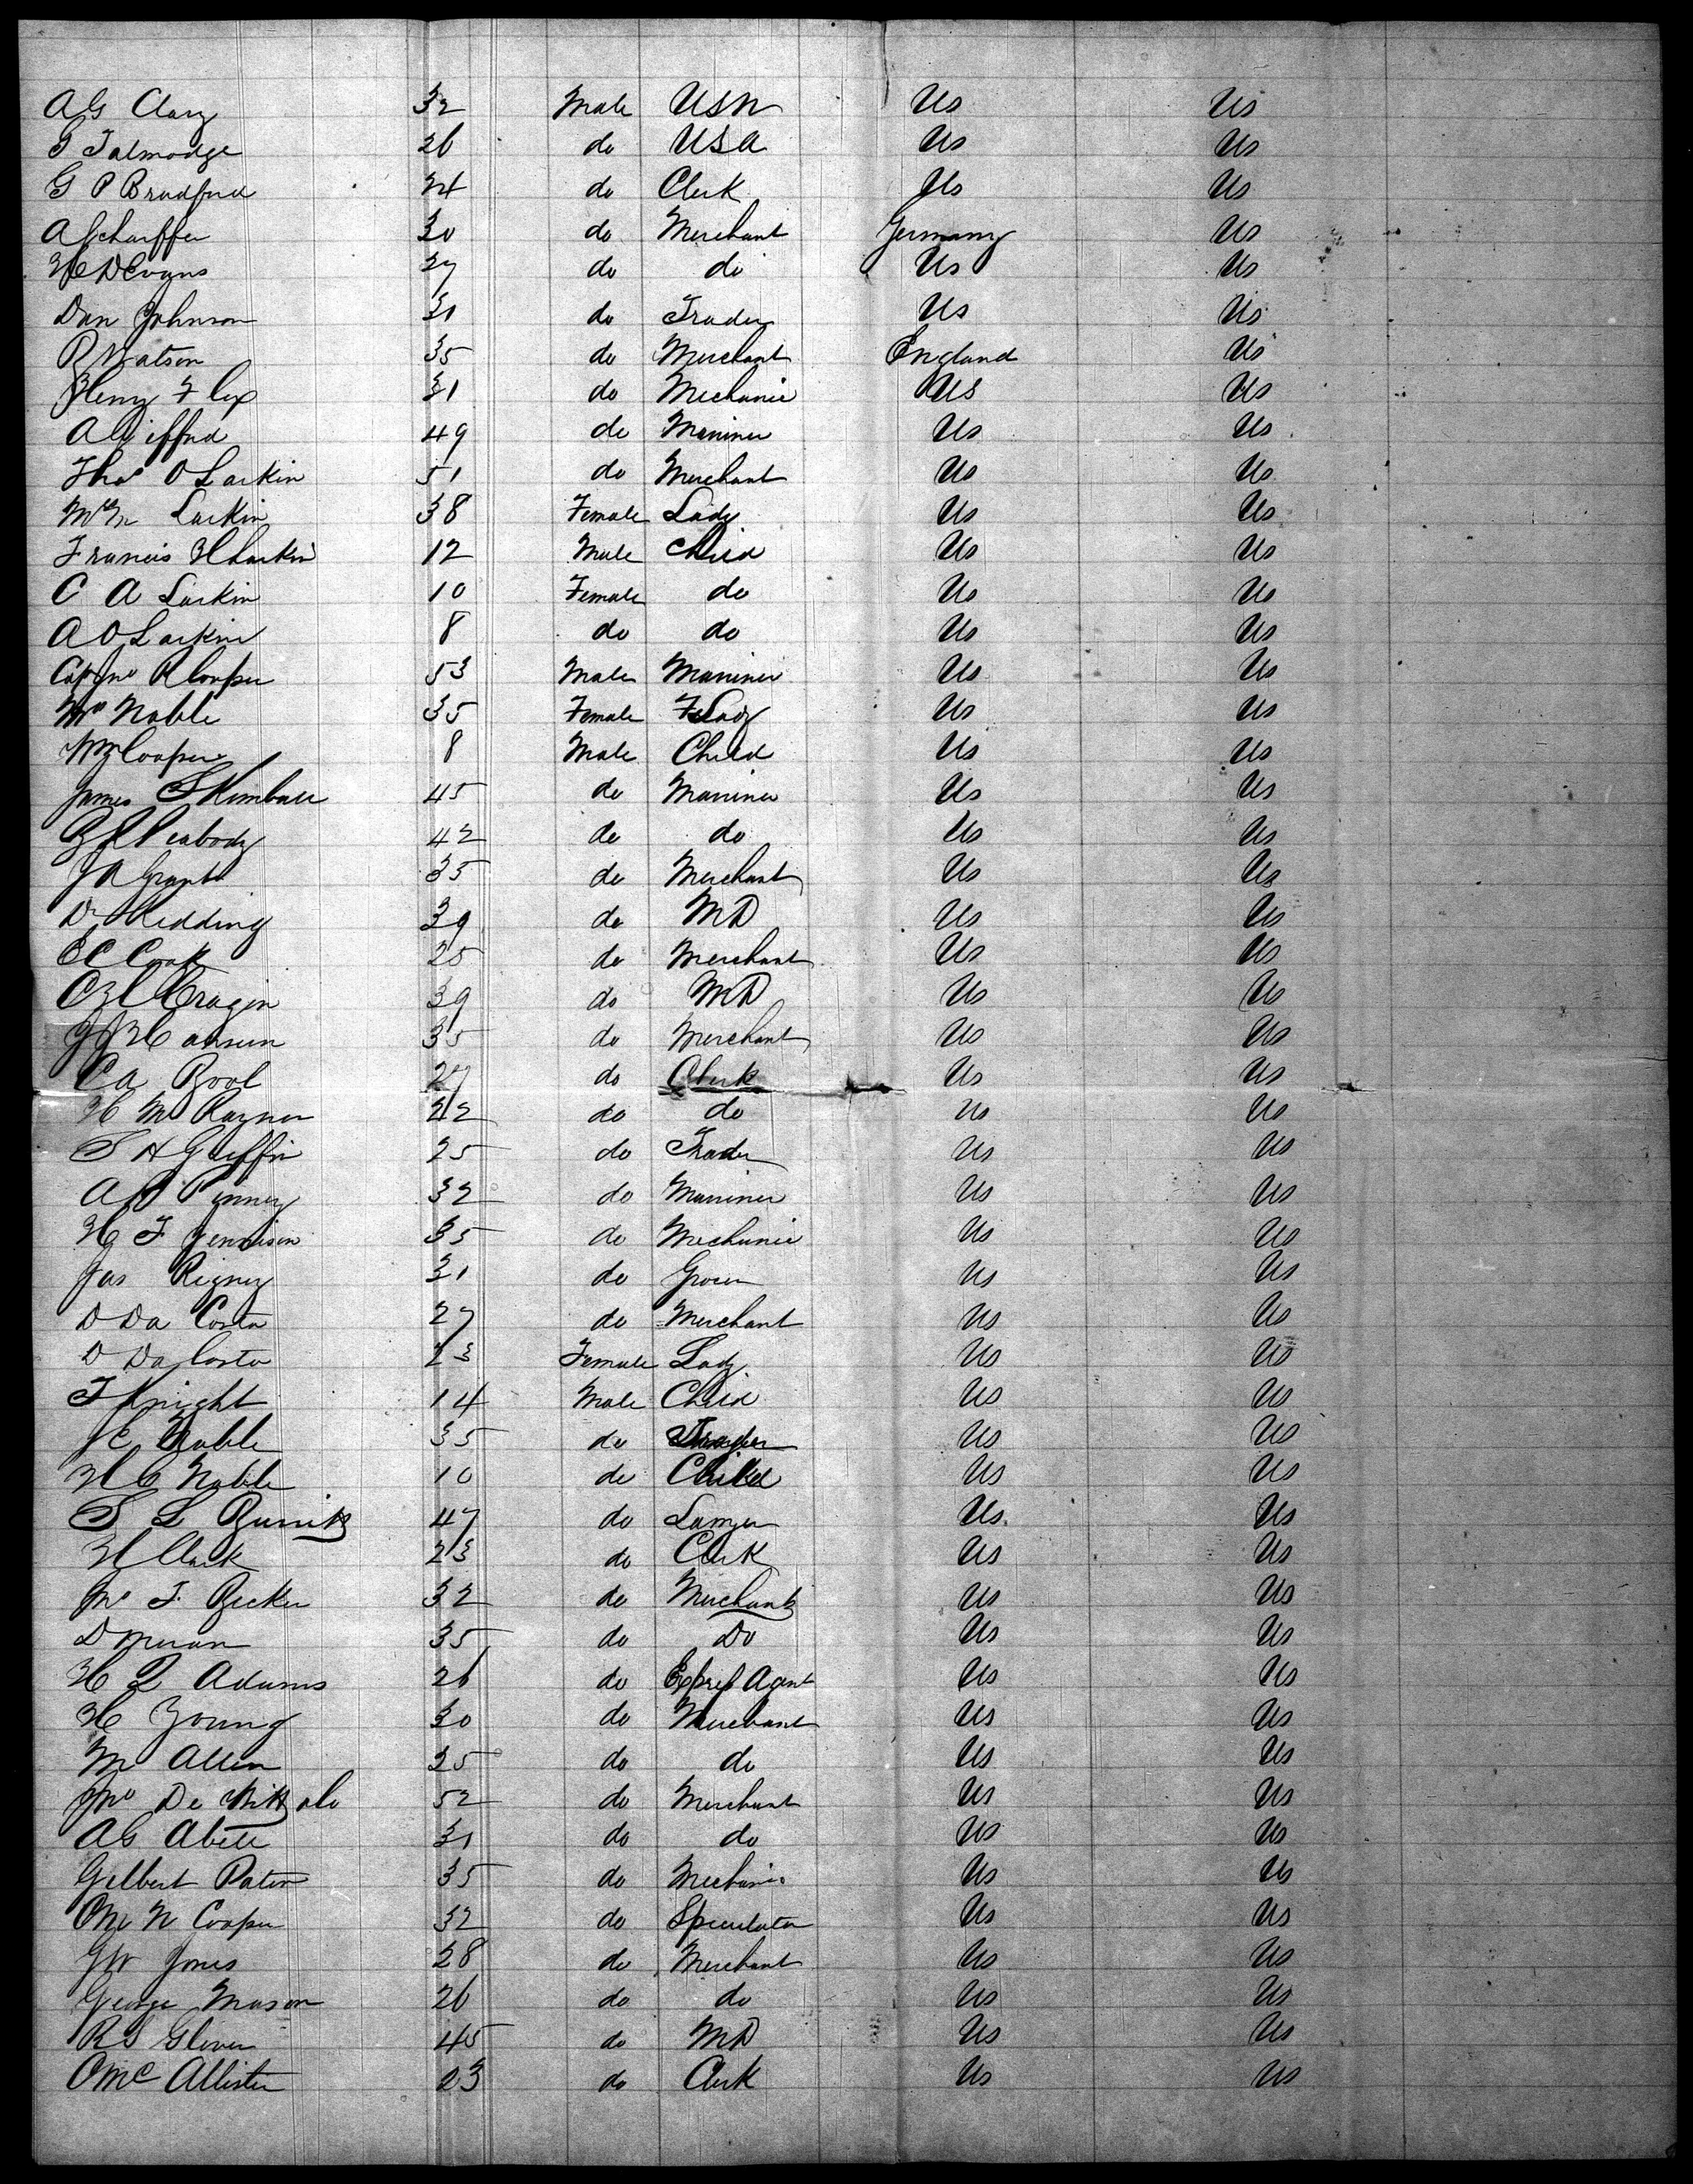 A G Clary 32 Male USN Us Us
G Talmadge 26 do USA Us Us
G P Bradford 24 do Clerk Us Us
A Scharffer 30 do Merchant Germany Us
H D Evans 27 do do Us Us
Dan Johnson 31 do Trader Us Us
R Watson 35 do Merchant England Us
Henry F 31 do Mechanic US Us
A Gifford 49 do Mariner Us Us
Thos O Larkin 51 do Merchant Us Us
Larkin 38 Female Lady Us Us
Francis H Larkin 12 Male Child Us Us
C A Larkin 10 Female do Us Us
A O Larkin 8 do do Us Us
Capt Jno R Cooper 53 Male Mariner Us Us
Mrs Noble 35 Female Lady Us Us
Wm Cooper 8 Male Child Us Us
James S Kimball 45 do Mariner Us Us
Peabody 42 do do Us Us
J A Grant 35 do Merchant Us Us
Dr Redding 39 do MD Us Us
E C Cook 25 do Merchant Us Us
C H Cragin 39 do MD Us Us
Hanson 35 do Merchant Us Us
C A Bool 27 do Clerk Us Us
H M Raynor 22 do do Us Us
S H Griffin 25 do Trader Us Us
A Pinney 32 do Mariner Us Us
H F Jennison 35 do Mechanic Us Us
Jas Rigney 31 do Grocer Us Us
D Da Costa 27 do Merchant Us Us
D Da Costa 23 Female Lady Us Us
T Knight 14 Male Child Us Us
J C Noble 35 do Trader Us Us
H C Noble 10 do Child Us Us
S L 47 do Lawyer Us Us
H Clark 23 do Clerk Us Us
F. Becker 32 do Merchant Us Us
D Meran 35 do Do Us Us
H L Adams 26 do Express Agent Us Us
H Young 30 do Merchant Us Us
M Allen 25 do do Us Us
Jno De 52 do Merchant Us Us
A G Abell 31 do do Us Us
Gilbert Paton 35 do Mechanic Us Us
N Cooper 32 do Speculator Us Us
J W Jones 28 do Merchant Us Us
George Mason 26 do do Us Us
R S Glover 45 do MD Us Us
C McAllister 23 do Clerk Us Us